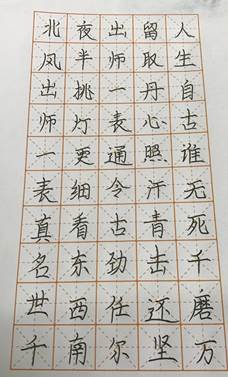 人生自古谁无死千磨万
留取丹心照汗青击还坚
出师一表通今古劲任尔
夜半挑灯更细看东西南
北风出师一表真名世千